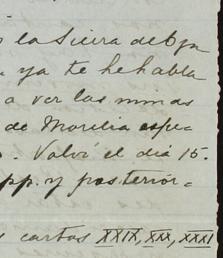 la Sierra de Oja
ya te he habla
a ver las minas
de Morelia espe-
. Volví el día 15.
pp. y posterior=
cartas XXIX, XXX, XXXI